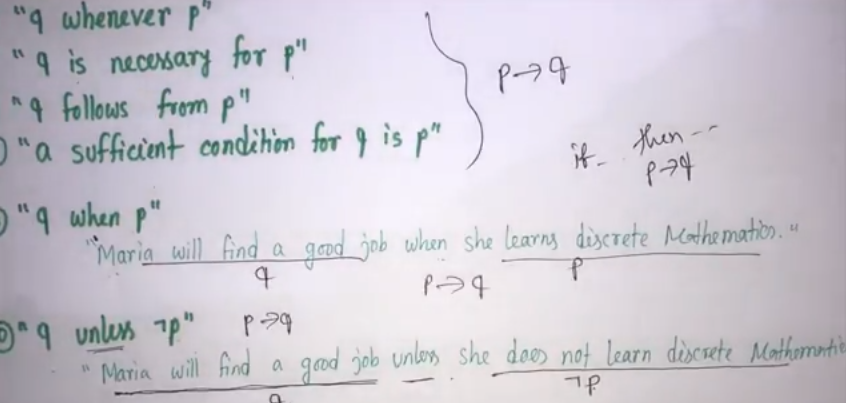 "q whenever p"
"q is necessary for p"
"q follows from p"
p→q
) "a sufficient condition for q is p"
if - . then --
p→q
) "q when p"
"Maria will find a good job when she learns discrete Mathematics."
q p→q p
) "q unless ¬p" p→q
"Maria will find a good job unless she does not learn discrete Mathematic
q ¬p